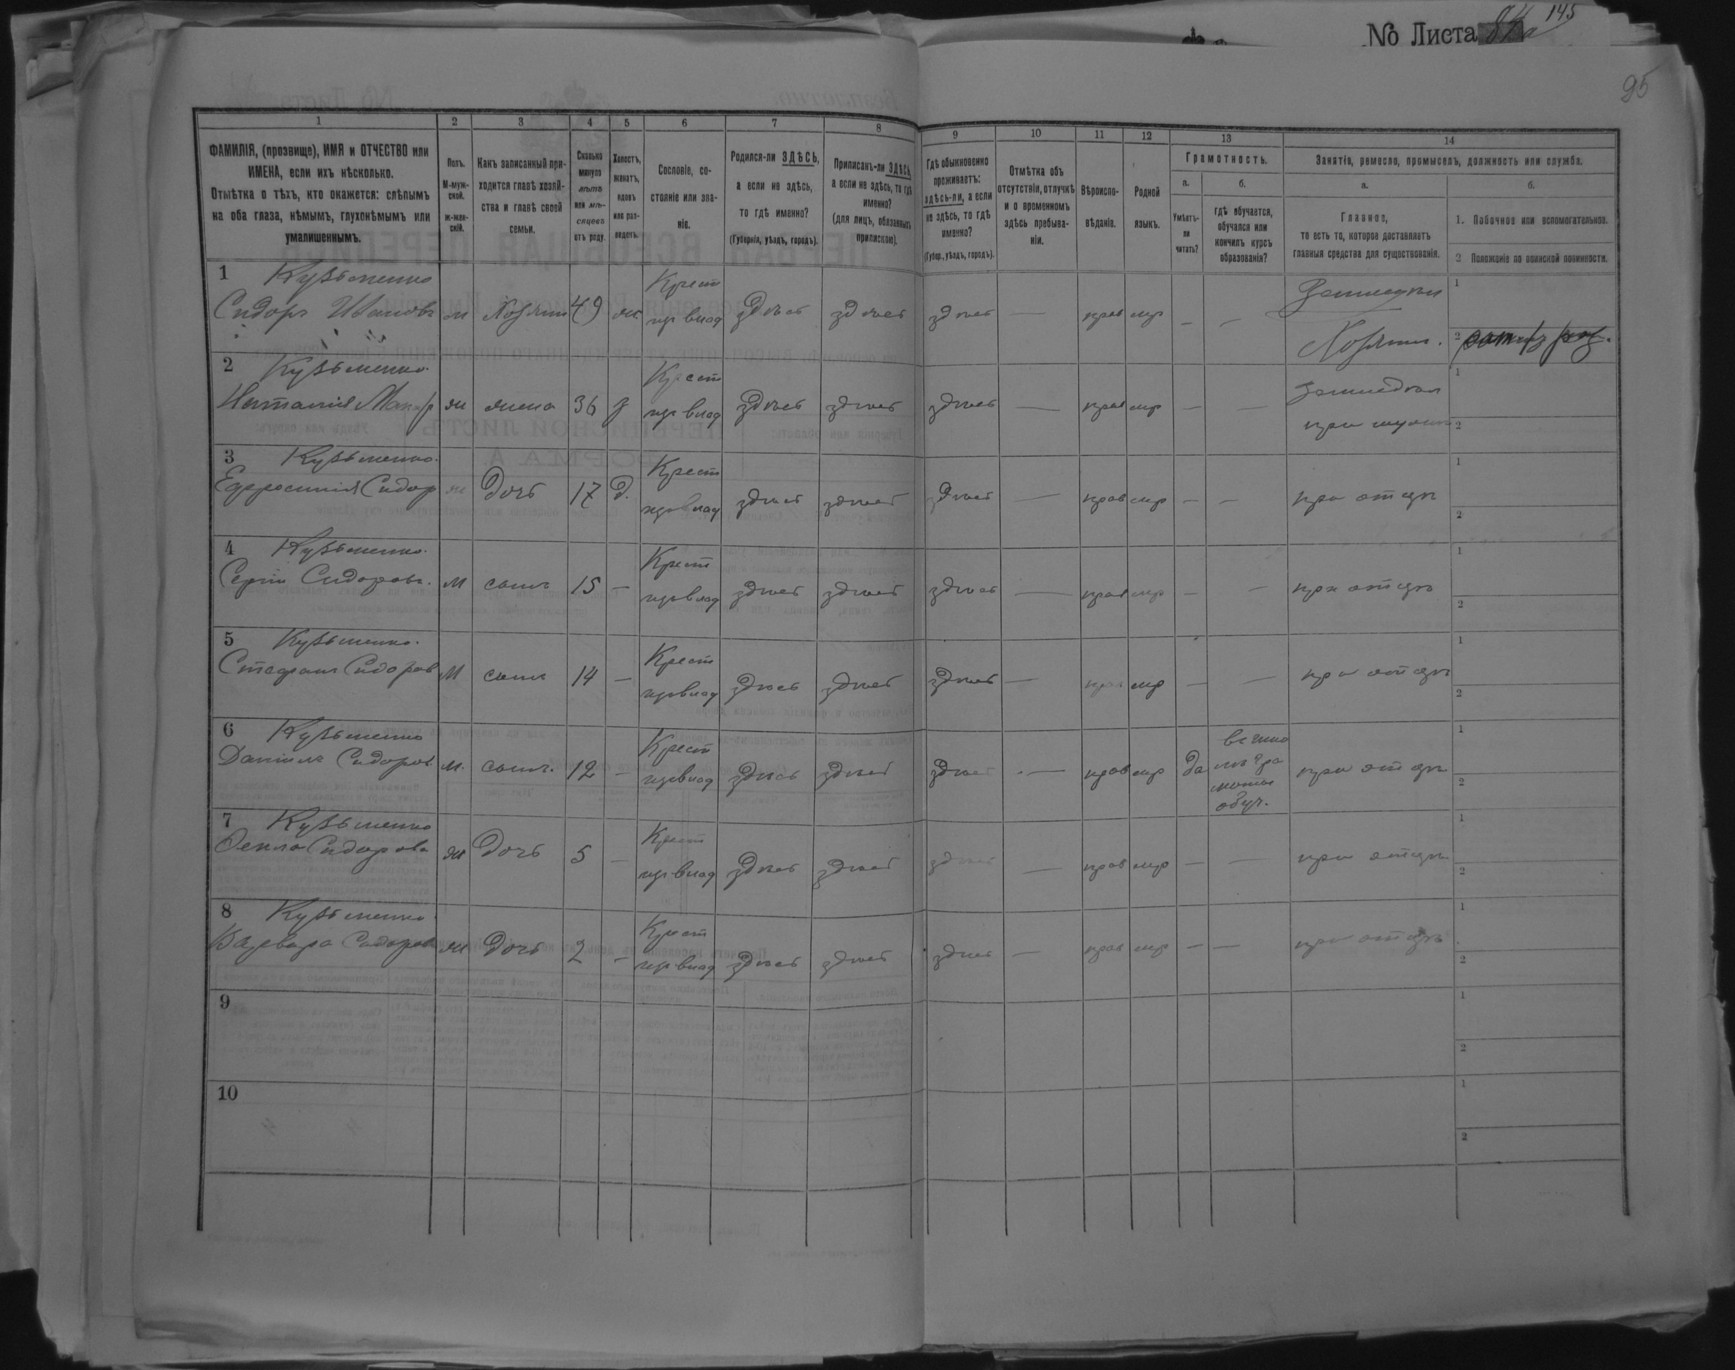 № Листа
145
95
1
2
3
4
5
6
7
8
9
10
11
12
13
14
ФАМИЛІЯ, (прозвище), ИМЯ и ОТЧЕСТВО или
ИМЕНА, если ихъ нѣсколько.
Отмѣтка о тѣхъ, кто окажется: слѣпымъ
на оба глаза, нѣмымъ, глухонѣмымъ или
умалишеннымъ.
Полъ.
М-муж-
ской.
ж-жен-
скій.
Какъ записанный при-
ходится главѣ хозяй-
ства и главѣ своей
семьи.
Сколько
минуло
лѣтъ
или мѣ-
сяцевъ
отъ роду.
Холостъ,
женатъ,
вдовъ
или раз-
веденъ.
Сословіе, со-
стояніе или зва-
ніе.
Родился-ли ЗДѢСЬ,
а если не здѣсь,
то гдѣ именно?
(Губернія, уѣздъ, городъ).
Приписанъ-ли ЗДѢСЬ,
а если не здѣсь, то гдѣ
именно?
(для лицъ, обязанныхъ
припискою).
Гдѣ обыкновенно
проживаетъ:
здѣсь-ли, а если
не здѣсь, то гдѣ
именно?
(Губер., уѣздъ, городъ).
Отмѣтка объ
отсутствіи, отлучкѣ
и о временномъ
здѣсь пребыва-
ніи.
Вѣроиспо-
вѣданіе.
Родной
языкъ.
Грамотность.
а.
Умѣетъ-
ли
читать?
б.
гдѣ обучается,
обучался или
кончилъ курсъ
образованія?
Занятіе, ремесло, промыселъ, должность или служба.
а.
Главное,
то есть то, которое доставляетъ
главныя средства для существованія.
б.
1. Побочное или вспомогательное.
2 Положеніе по воинской повинности.
1 Кузьменко
Сидоръ Ивановъ м Хозяинъ 49 ж Крест изъ влад здѣсь здѣсь здѣсь — прав мр — —
Хозяинъ.
1
2
2 Кузьменко
Наталія ж жена 36 Крест изъ влад здѣсь здѣсь здѣсь — прав мр — —
при мужѣ
1
2
3 Кузьменко
Ефросинія Сидор ж дочь 17 д. Крест изъ влад здѣсь здѣсь здѣсь — прав мр — — при отцѣ
1
2
4 Кузьменко
Сергій Сидоровъ. м сынъ 15 — Крест изъ влад здѣсь здѣсь здѣсь — прав мр — — при отцѣ
1
2
5 Кузьменко
Стефанъ Сидоров м сынъ 14 — Крест изъ влад здѣсь здѣсь здѣсь — прав мр — — при отцѣ
1
2
6 Кузьменко
Даніилъ Сидоров м. сынъ 12 — Крест изъ влад здѣсь здѣсь здѣсь — прав мр да
обуч.
при отцѣ
1
2
7 Кузьменко
Сидорова ж дочь 5 — Крест изъ влад здѣсь здѣсь здѣсь — прав мр — — при отцѣ
1
2
8 Кузьменко
Варвара Сидоров ж дочь 2 — Крест изъ влад здѣсь здѣсь здѣсь — прав мр — — при отцѣ
1
2
9
1
2
10
1
2